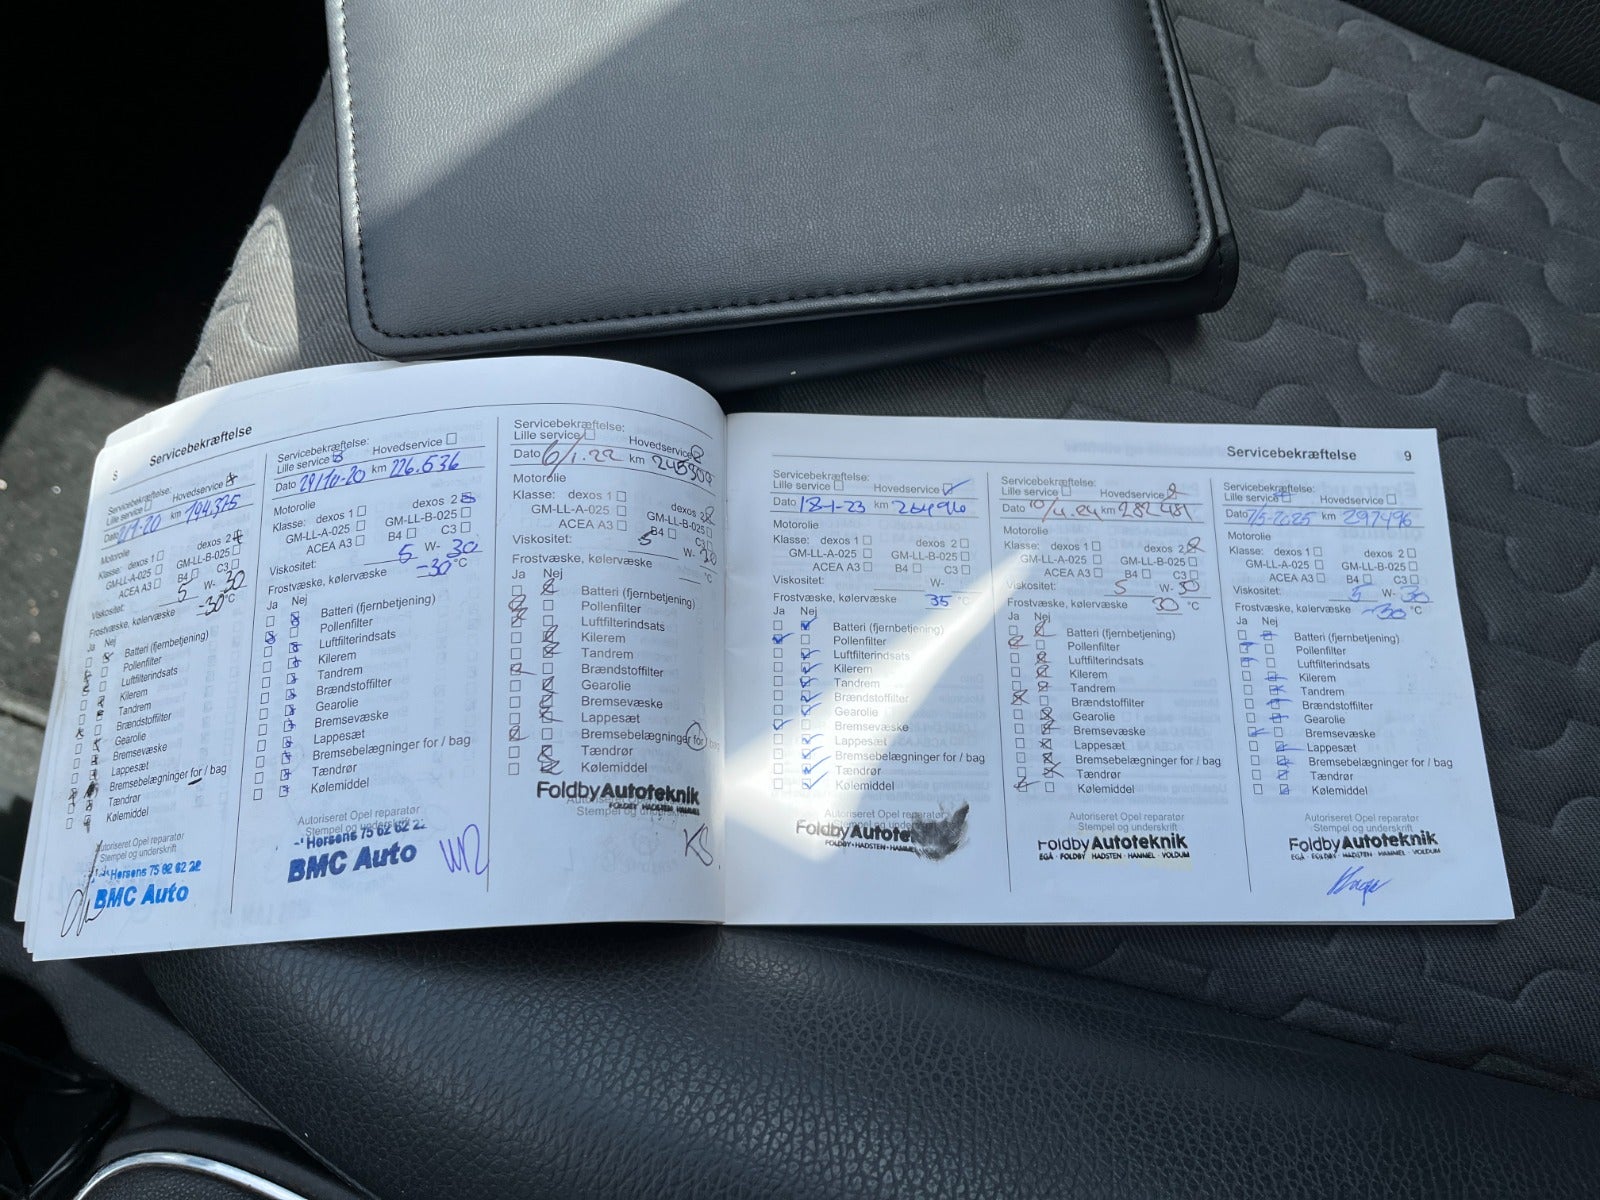 8 Servicebekræftelse
Servicebekræftelse:
Lille service Hovedservice
Dato km 194.375
Motorolie
Klasse: dexos 1 dexos 2
GM-LL-A-025 GM-LL-B-025
ACEA A3 B4 C3
Viskositet: 5 W- 30
Frostvæske, kølervæske -30 °C
Ja Nej
Batteri (fjernbetjening)
Pollenfilter
Luftfilterindsats
Kilerem
Tandrem
Brændstoffilter
Gearolie
Bremsevæske
Lappesæt
Bremsebelægninger for / bag
Tændrør
Kølemiddel
Autoriseret Opel reparatør
Stempel og underskrift
Horsens 75 62 62 22
BMC Auto
Servicebekræftelse:
Lille service Hovedservice
Dato km 226.636
Motorolie
Klasse: dexos 1 dexos 2
GM-LL-A-025 GM-LL-B-025
ACEA A3 C3
Viskositet: 5 W- 30
Frostvæske, kølervæske -30 °C
Ja Nej
Batteri (fjernbetjening)
Pollenfilter
Luftfilterindsats
Kilerem
Tandrem
Brændstoffilter
Gearolie
Bremsevæske
Lappesæt
Bremsebelægninger for / bag
Tændrør
Kølemiddel
Autoriseret Opel reparatør
Stempel og underskrift
Horsens 75 62 62 22
BMC Auto
Servicebekræftelse:
Lille service Hovedservice
Dato 6/1.22 km
Motorolie
Klasse: dexos 1 dexos 2
GM-LL-A-025 GM-LL-B-025
ACEA A3 B4 C3
Viskositet: 5 W- 30
°C
Ja Nej
Batteri (fjernbetjening)
Pollenfilter
Luftfilterindsats
Kilerem
Tandrem
Brændstoffilter
Gearolie
Bremsevæske
Lappesæt
Bremsebelægninger for / bag
Tændrør
Kølemiddel
FoldbyAutoteknik
FOLDBY HADSTEN HAMMEL
Stempel og underskrift
KS
Servicebekræftelse 9
Servicebekræftelse:
Lille service Hovedservice
Dato 18-1-23 km
Motorolie
Klasse: dexos 1 dexos 2
GM-LL-A-025 GM-LL-B-025
ACEA A3 B4 C3
Viskositet: W-
Frostvæske, kølervæske 35 °C
Ja Nej
Batteri (fjernbetjening)
Pollenfilter
Luftfilterindsats
Kilerem
Tandrem
Brændstoffilter
Gearolie
Bremsevæske
Lappesæt
Bremsebelægninger for / bag
Tændrør
Kølemiddel
Autoriseret Opel reparatør
Stempel og underskrift
FoldbyAutote
FOLDBY · HADSTEN · HAMMEL
Servicebekræftelse:
Lille service Hovedservice
Dato 10/4.24 282481
Motorolie
Klasse: dexos 1 dexos 2
GM-LL-A-025 GM-LL-B-025
ACEA A3 B4 C3
Viskositet: 5 W- 30
Frostvæske, kølervæske 30 °C
Ja Nej
Batteri (fjernbetjening)
Pollenfilter
Luftfilterindsats
Kilerem
Tandrem
Brændstoffilter
Gearolie
Bremsevæske
Lappesæt
Bremsebelægninger for / bag
Tændrør
Kølemiddel
Autoriseret Opel reparatør
Stempel og underskrift
FoldbyAutoteknik
EGÅ · FOLDBY · HADSTEN · HAMMEL · VOLDUM
Servicebekræftelse:
Lille service Hovedservice
Dato 7/5-2025 km 297496
Motorolie
Klasse: dexos 1 dexos 2
GM-LL-A-025 GM-LL-B-025
ACEA A3 B4 C3
Viskositet: 5 W- 30
Frostvæske, kølervæske -30 °C
Ja Nej
Batteri (fjernbetjening)
Pollenfilter
Luftfilterindsats
Kilerem
Tandrem
Brændstoffilter
Gearolie
Bremsevæske
Lappesæt
Bremsebelægninger for / bag
Tændrør
Kølemiddel
Autoriseret Opel reparatør
Stempel og underskrift
FoldbyAutoteknik
EGÅ · FOLDBY · HADSTEN · HAMMEL · VOLDUM